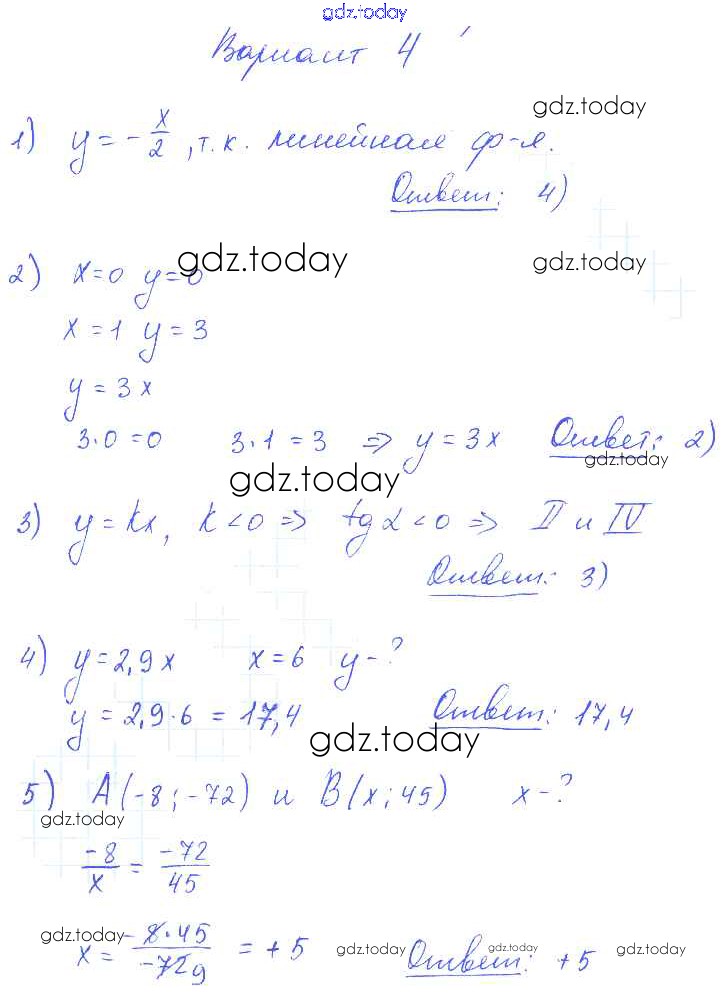 gdz.today
Вариант 4
gdz.today
1) y = -x/2, т.к. линейная ф-я.
Ответ: 4)
gdz.today gdz.today
2) x=0 y=0
x=1 y=3
y=3x
3·0=0 3·1=3 ⇒ y=3x Ответ: 2)
gdz.today
gdz.today
3) y=kx, k<0 ⇒ tg α<0 ⇒ II и IV
Ответ: 3)
4) y=2,9x x=6 y-?
y=2,9·6=17,4 Ответ: 17,4
gdz.today
5) A(-8;-72) и B(x;45) x-?
gdz.today
-8/x = -72/45
gdz.today gdz.today gdz.today gdz.today
x = -8·45/-72 9 = +5 Ответ: +5